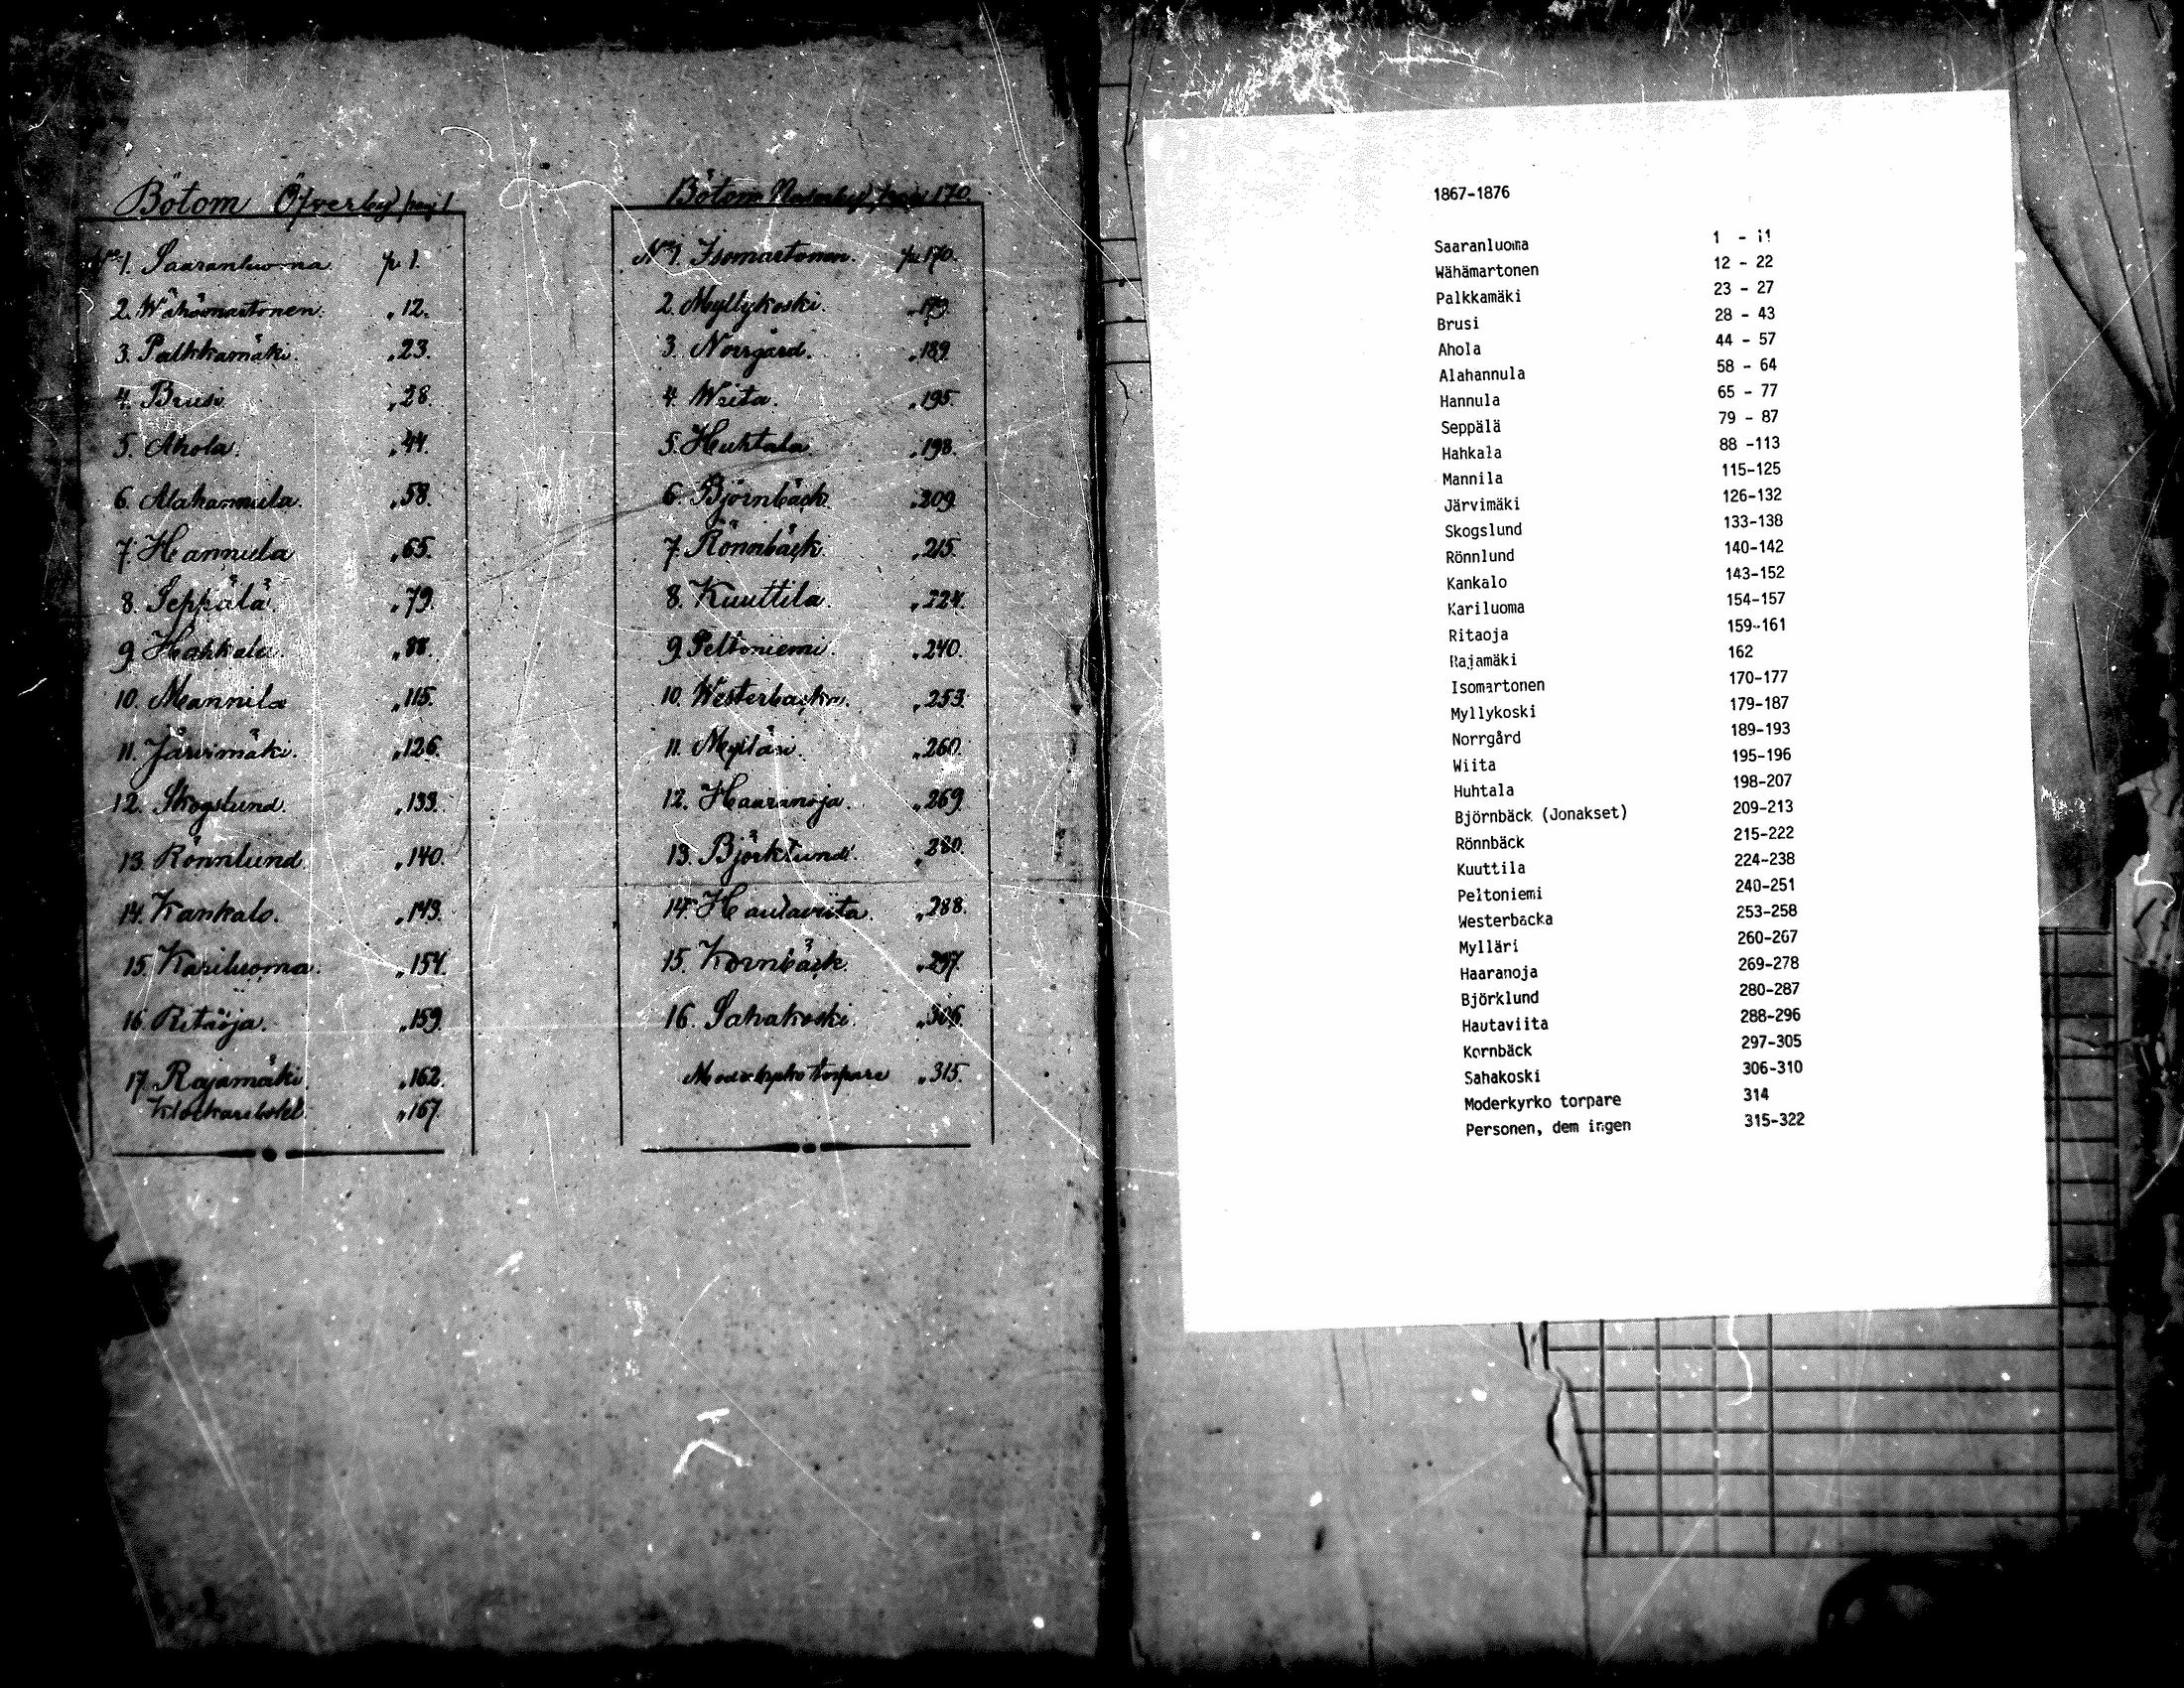 Bötom Öfverby pag 1
No 1. Saaranluoma p. 1.
2. Wähämartonen. " 12.
3. Palkkamäki. " 23.
4. Brusi " 28.
5. Ahola. " 44.
6. Alahannula. " 58.
7. Hannula " 65.
8. Seppälä " 79.
9. Hahkala. " 88.
10. Mannila " 115.
11. Järvimäki. " 126.
12. Skogslund. " 133.
13. Rönnlund. " 140.
14. Kankalo. " 143.
15. Kariluoma. " 154.
16. Ritaoja. " 159.
17. Rajamäki. " 162.
" 167.
Bötom Nederby pag 170.
No 1. Isomartonen. p. 170.
2. Myllykoski. " 179.
3. Norrgård. " 189.
4. Wiita. " 195.
5. Huhtala. " 198.
6. Björnbäck. " 209.
7. Rönnbäck. " 215.
8. Kuuttila. " 224.
9. Peltoniemi. " 240.
10. Westerbacka. " 253.
11. Mylläri. " 260.
12. Haaranoja. " 269.
13. Björklund. " 280.
14. Hautaviita. " 288.
15. Kornbäck. " 297.
16. Sahakoski. " 306.
Moderkyrko torpare " 315.
1867-1876
Saaranluoma 1 - 11
Wähämartonen 12 - 22
Palkkamäki 23 - 27
Brusi 28 - 43
Ahola 44 - 57
Alahannula 58 - 64
Hannula 65 - 77
Seppälä 79 - 87
Hahkala 88 -113
Mannila 115-125
Järvimäki 126-132
Skogslund 133-138
Rönnlund 140-142
Kankalo 143-152
Kariluoma 154-157
Ritaoja 159-161
Rajamäki 162
Isomartonen 170-177
Myllykoski 179-187
Norrgård 189-193
Wiita 195-196
Huhtala 198-207
Björnbäck (Jonakset) 209-213
Rönnbäck 215-222
Kuuttila 224-238
Peltoniemi 240-251
Westerbacka 253-258
Mylläri 260-267
Haaranoja 269-278
Björklund 280-287
Hautaviita 288-296
Kornbäck 297-305
Sahakoski 306-310
Moderkyrko torpare 314
Personen, dem ingen 315-322